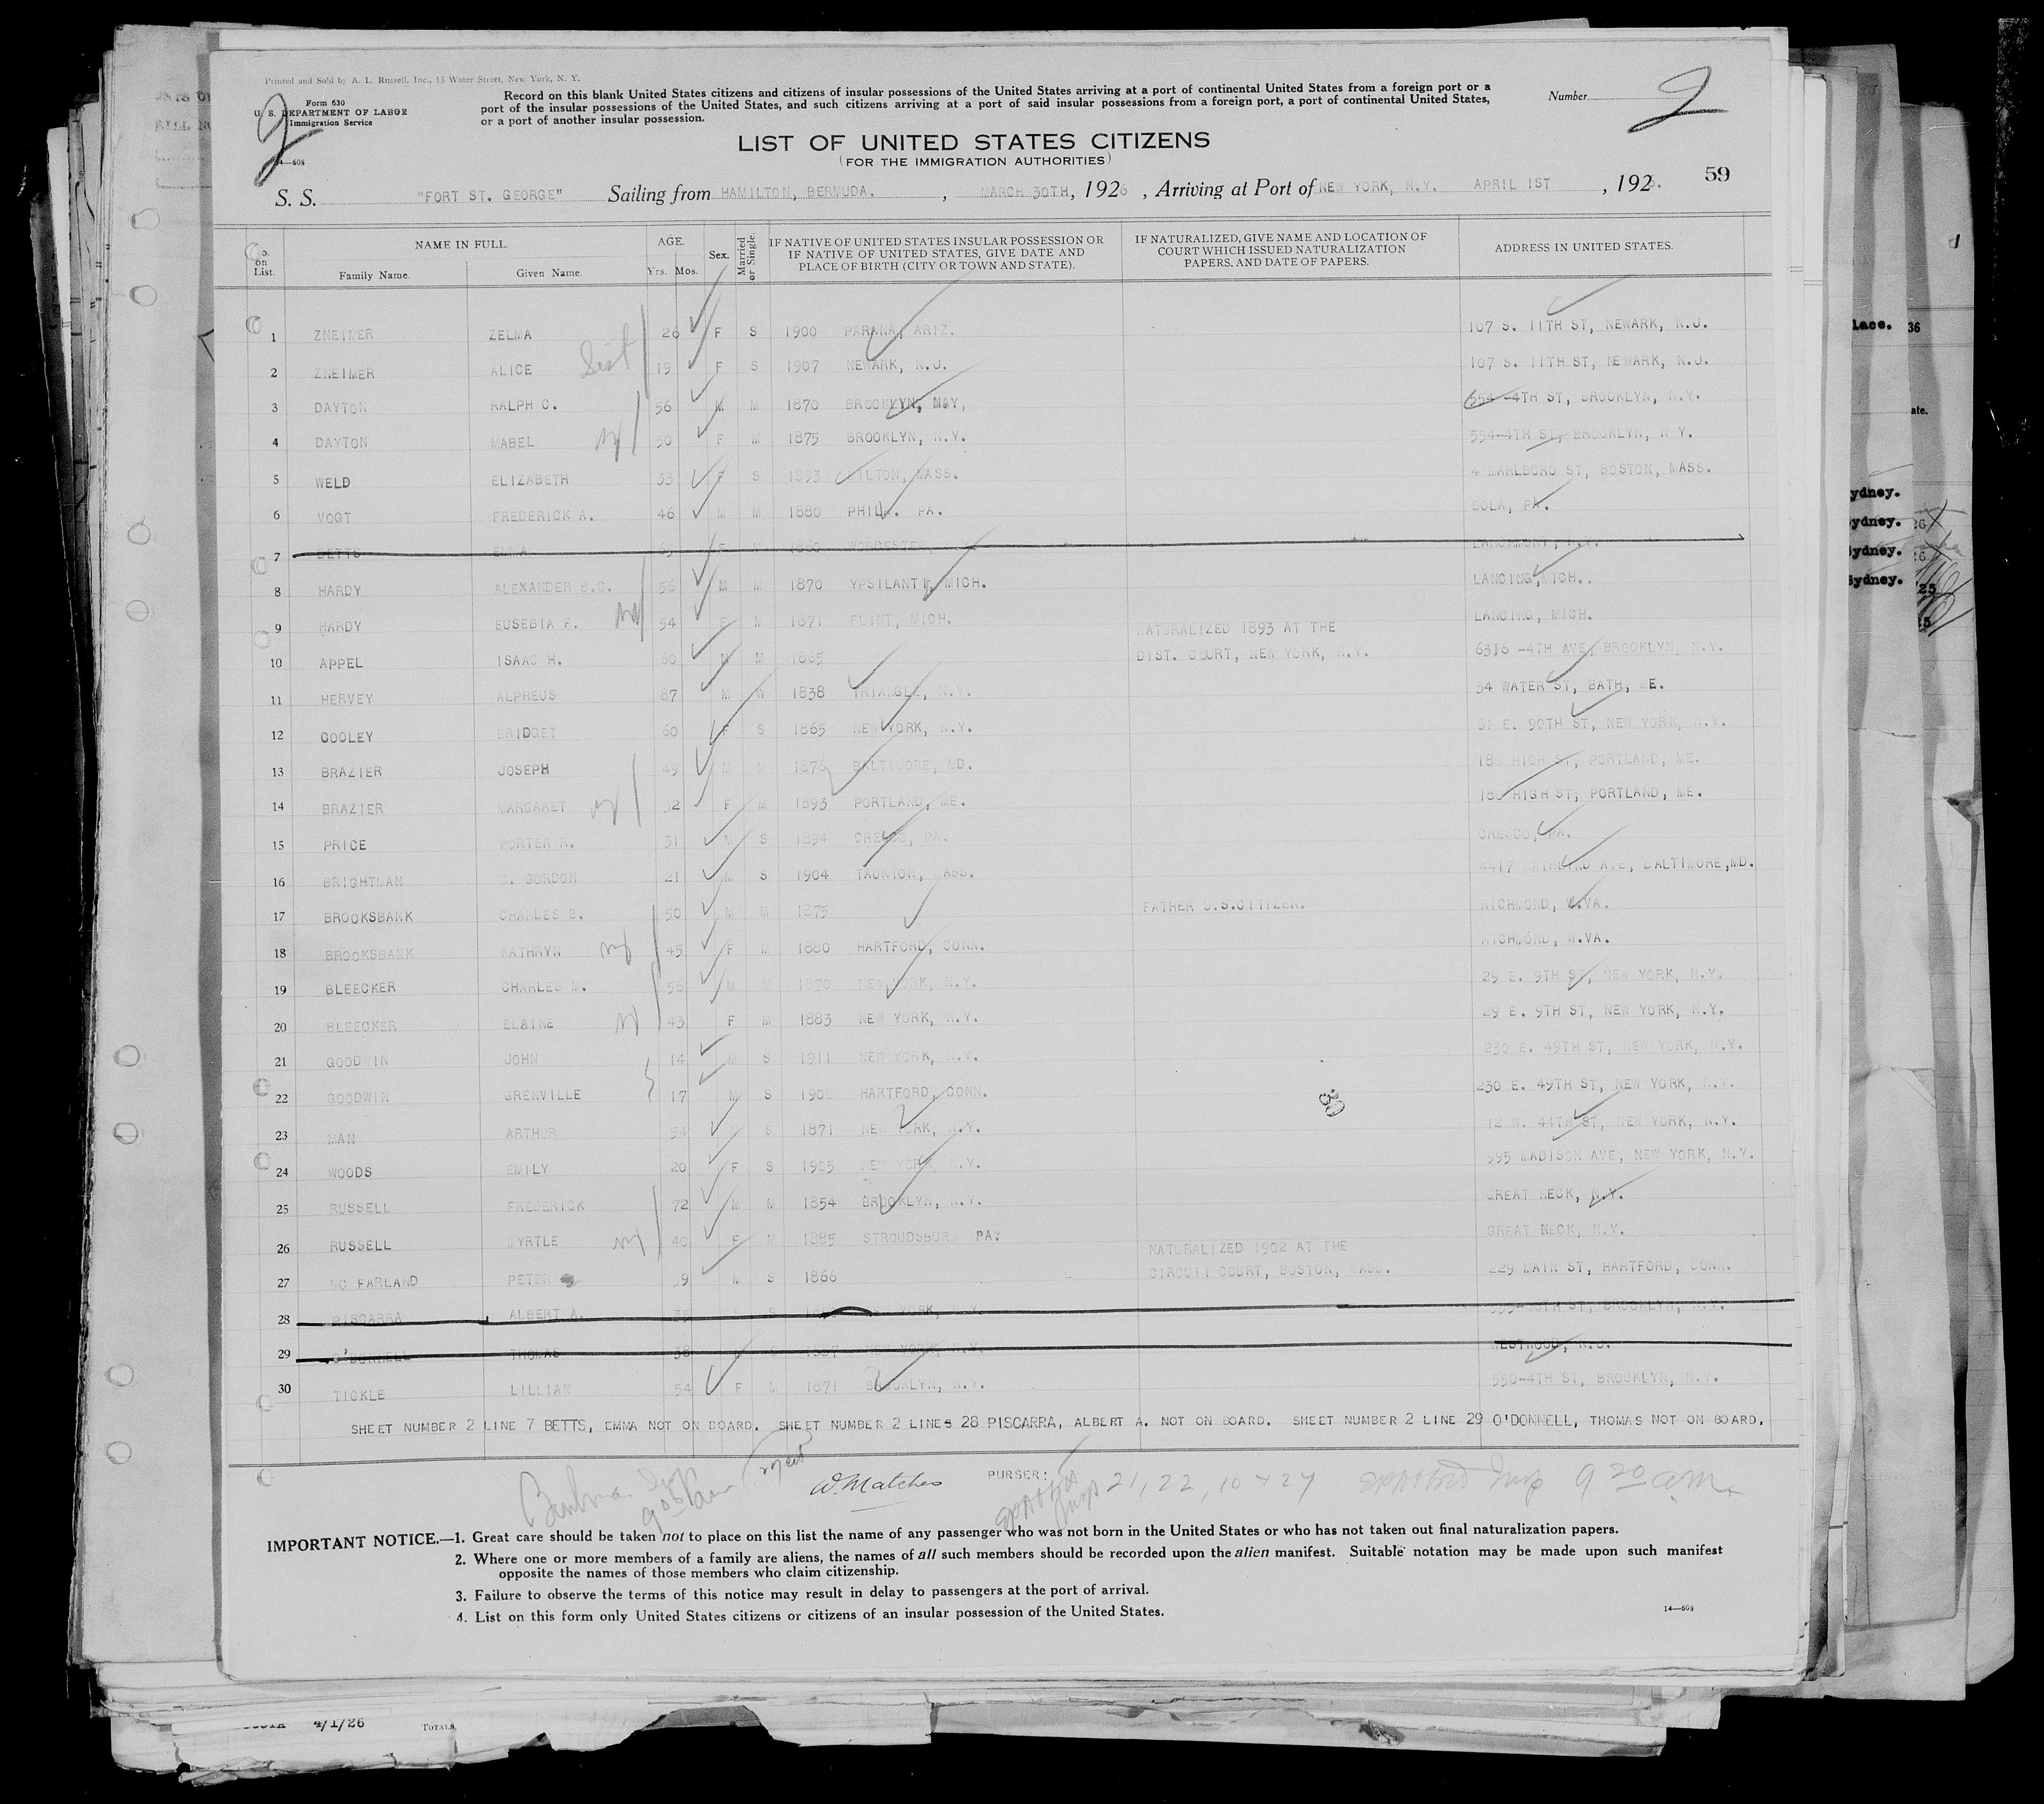 Printed and Sold by A. L. Russell, Inc., 13 Water Street, New York, N. Y.
Form 630
U. S. DEPARTMENT OF LABOR
Immigration Service
14—608
2
Record on this blank United States citizens and citizens of insular possessions of the United States arriving at a port of continental United States from a foreign port or a
port of the insular possessions of the United States, and such citizens arriving at a port of said insular possessions from a foreign port, a port of continental United States,
or a port of another insular possession.
Number 2
LIST OF UNITED STATES CITIZENS
(FOR THE IMMIGRATION AUTHORITIES)
59
S. S. "FORT ST. GEORGE" Sailing from HAMILTON, BERMUDA. , MARCH 30TH, 1926 , Arriving at Port of NEW YORK, N.Y. APRIL 1ST , 1926.
No. on List. NAME IN FULL. Family Name. Given Name. AGE. Yrs. Mos. Sex. Married or Single. IF NATIVE OF UNITED STATES INSULAR POSSESSION OR IF NATIVE OF UNITED STATES, GIVE DATE AND PLACE OF BIRTH (CITY OR TOWN AND STATE). IF NATURALIZED, GIVE NAME AND LOCATION OF COURT WHICH ISSUED NATURALIZATION PAPERS, AND DATE OF PAPERS. ADDRESS IN UNITED STATES.
1 ZNEIMER ZELMA 26 F S 1900 PARANA, ARIZ. 107 S. 11TH ST, NEWARK, N.J.
2 ZNEIMER ALICE Sist 19 F S 1907 NEWARK, N.J. 107 S. 11TH ST, NEWARK, N.J.
3 DAYTON RALPH C. 56 M M 1870 BROOKLYN, N.Y, 554-4TH ST, BROOKLYN, N.Y.
4 DAYTON MABEL 50 F M 1875 BROOKLYN, N.Y. 554-4TH ST, BROOKLYN, N.Y.
5 WELD ELIZABETH 33 F S 1893 MILTON, MASS. 4 MARLBORO ST, BOSTON, MASS.
6 VOGT FREDERICK A. 46 M M 1880 PHILA. PA. PA.
7 BETTS EMMA F M 1860 WORCESTER, LARCHMONT, N.Y.
8 HARDY ALEXANDER B.C. 56 M M 1870 YPSILANTI, MICH. LANCING, MICH.
9 HARDY EUSEBIA F. 54 F M 1871 FLINT, MICH. LANCING, MICH.
NATURALIZED 1893 AT THE
10 APPEL ISAAC H. 60 M M 1865 DIST. COURT, NEW YORK, N.Y. 6316 -4TH AVE, BROOKLYN, N.Y.
11 HERVEY ALPHEUS 87 M W 1838 TRIANGLE, N.Y. 34 WATER ST, BATH, ME.
12 COOLEY BRIDGET 60 F S 1865 NEW YORK, N.Y. 61 E. 90TH ST, NEW YORK, N.Y.
13 BRAZIER JOSEPH 49 M M 1876 BALTIMORE, MD. HIGH ST, PORTLAND, ME.
14 BRAZIER MARGARET 32 F M 1893 PORTLAND, ME. HIGH ST, PORTLAND, ME.
15 PRICE PORTER R. 31 M S 1894 CRESCO, PA. CRESCO, PA.
16 BRIGHTMAN GORDON 21 M S 1904 TAUNTON, MASS. 4417 AVE, BALTIMORE, MD.
17 BROOKSBANK CHARLES B. 50 M M 1875 FATHER U.S.CITIZEN. RICHMOND, W.VA.
18 BROOKSBANK KATHRYN 45 F M 1880 HARTFORD, CONN. RICHMOND, W.VA.
19 BLEECKER CHARLES M. 56 M M 1870 NEW YORK, N.Y. 29 E. 9TH ST, NEW YORK, N.Y.
20 BLEECKER ELAINE 43 F M 1883 NEW YORK, N.Y. 29 E. 9TH ST, NEW YORK, N.Y.
21 GOODWIN JOHN 14 M S 1911 NEW YORK, N.Y. 230 E. 49TH ST, NEW YORK, N.Y.
22 GOODWIN GRENVILLE 17 M S 1908 HARTFORD, CONN. 230 E. 49TH ST, NEW YORK, N.Y.
23 MAN ARTHUR 54 M S 1871 NEW YORK, N.Y. 12 W. 44TH ST, NEW YORK, N.Y.
24 WOODS EMILY 20 F S 1905 NEW YORK, N.Y. 995 MADISON AVE, NEW YORK, N.Y.
25 RUSSELL FREDERICK 72 M M 1854 BROOKLYN, N.Y. GREAT NECK, N.Y.
26 RUSSELL MYRTLE 40 F M 1885 STROUDSBURG PA. GREAT NECK, N.Y.
NATURALIZED 1902 AT THE
27 MC FARLAND PETER 59 M S 1866 CIRCUIT COURT, BOSTON, MASS. 229 MAIN ST, HARTFORD, CONN.
28 PISCARRA ALBERT A. 35 S YORK, N.Y. ST, BROOKLYN, N.Y.
29 O'DONNELL THOMAS 38 NEW YORK, N.Y. WESTWOOD, N.J.
30 TICKLE LILLIAN 54 F M 1871 BROOKLYN, N.Y. 550-4TH ST, BROOKLYN, N.Y.
SHEET NUMBER 2 LINE 7 BETTS, EMMA NOT ON BOARD. SHEET NUMBER 2 LINES 28 PISCARRA, ALBERT A. NOT ON BOARD. SHEET NUMBER 2 LINE 29 O'DONNELL, THOMAS NOT ON BOARD.
W. Matches PURSER: 21, 22, 10 & 27 Insp 9 20 am
IMPORTANT NOTICE.—1. Great care should be taken not to place on this list the name of any passenger who was not born in the United States or who has not taken out final naturalization papers.
2. Where one or more members of a family are aliens, the names of all such members should be recorded upon the alien manifest. Suitable notation may be made upon such manifest
opposite the names of those members who claim citizenship.
3. Failure to observe the terms of this notice may result in delay to passengers at the port of arrival.
4. List on this form only United States citizens or citizens of an insular possession of the United States.
14—608
4/1/26 TOTALS.
lace. 36
ate.
ydney.
ydney.
Sydney.
Sydney.